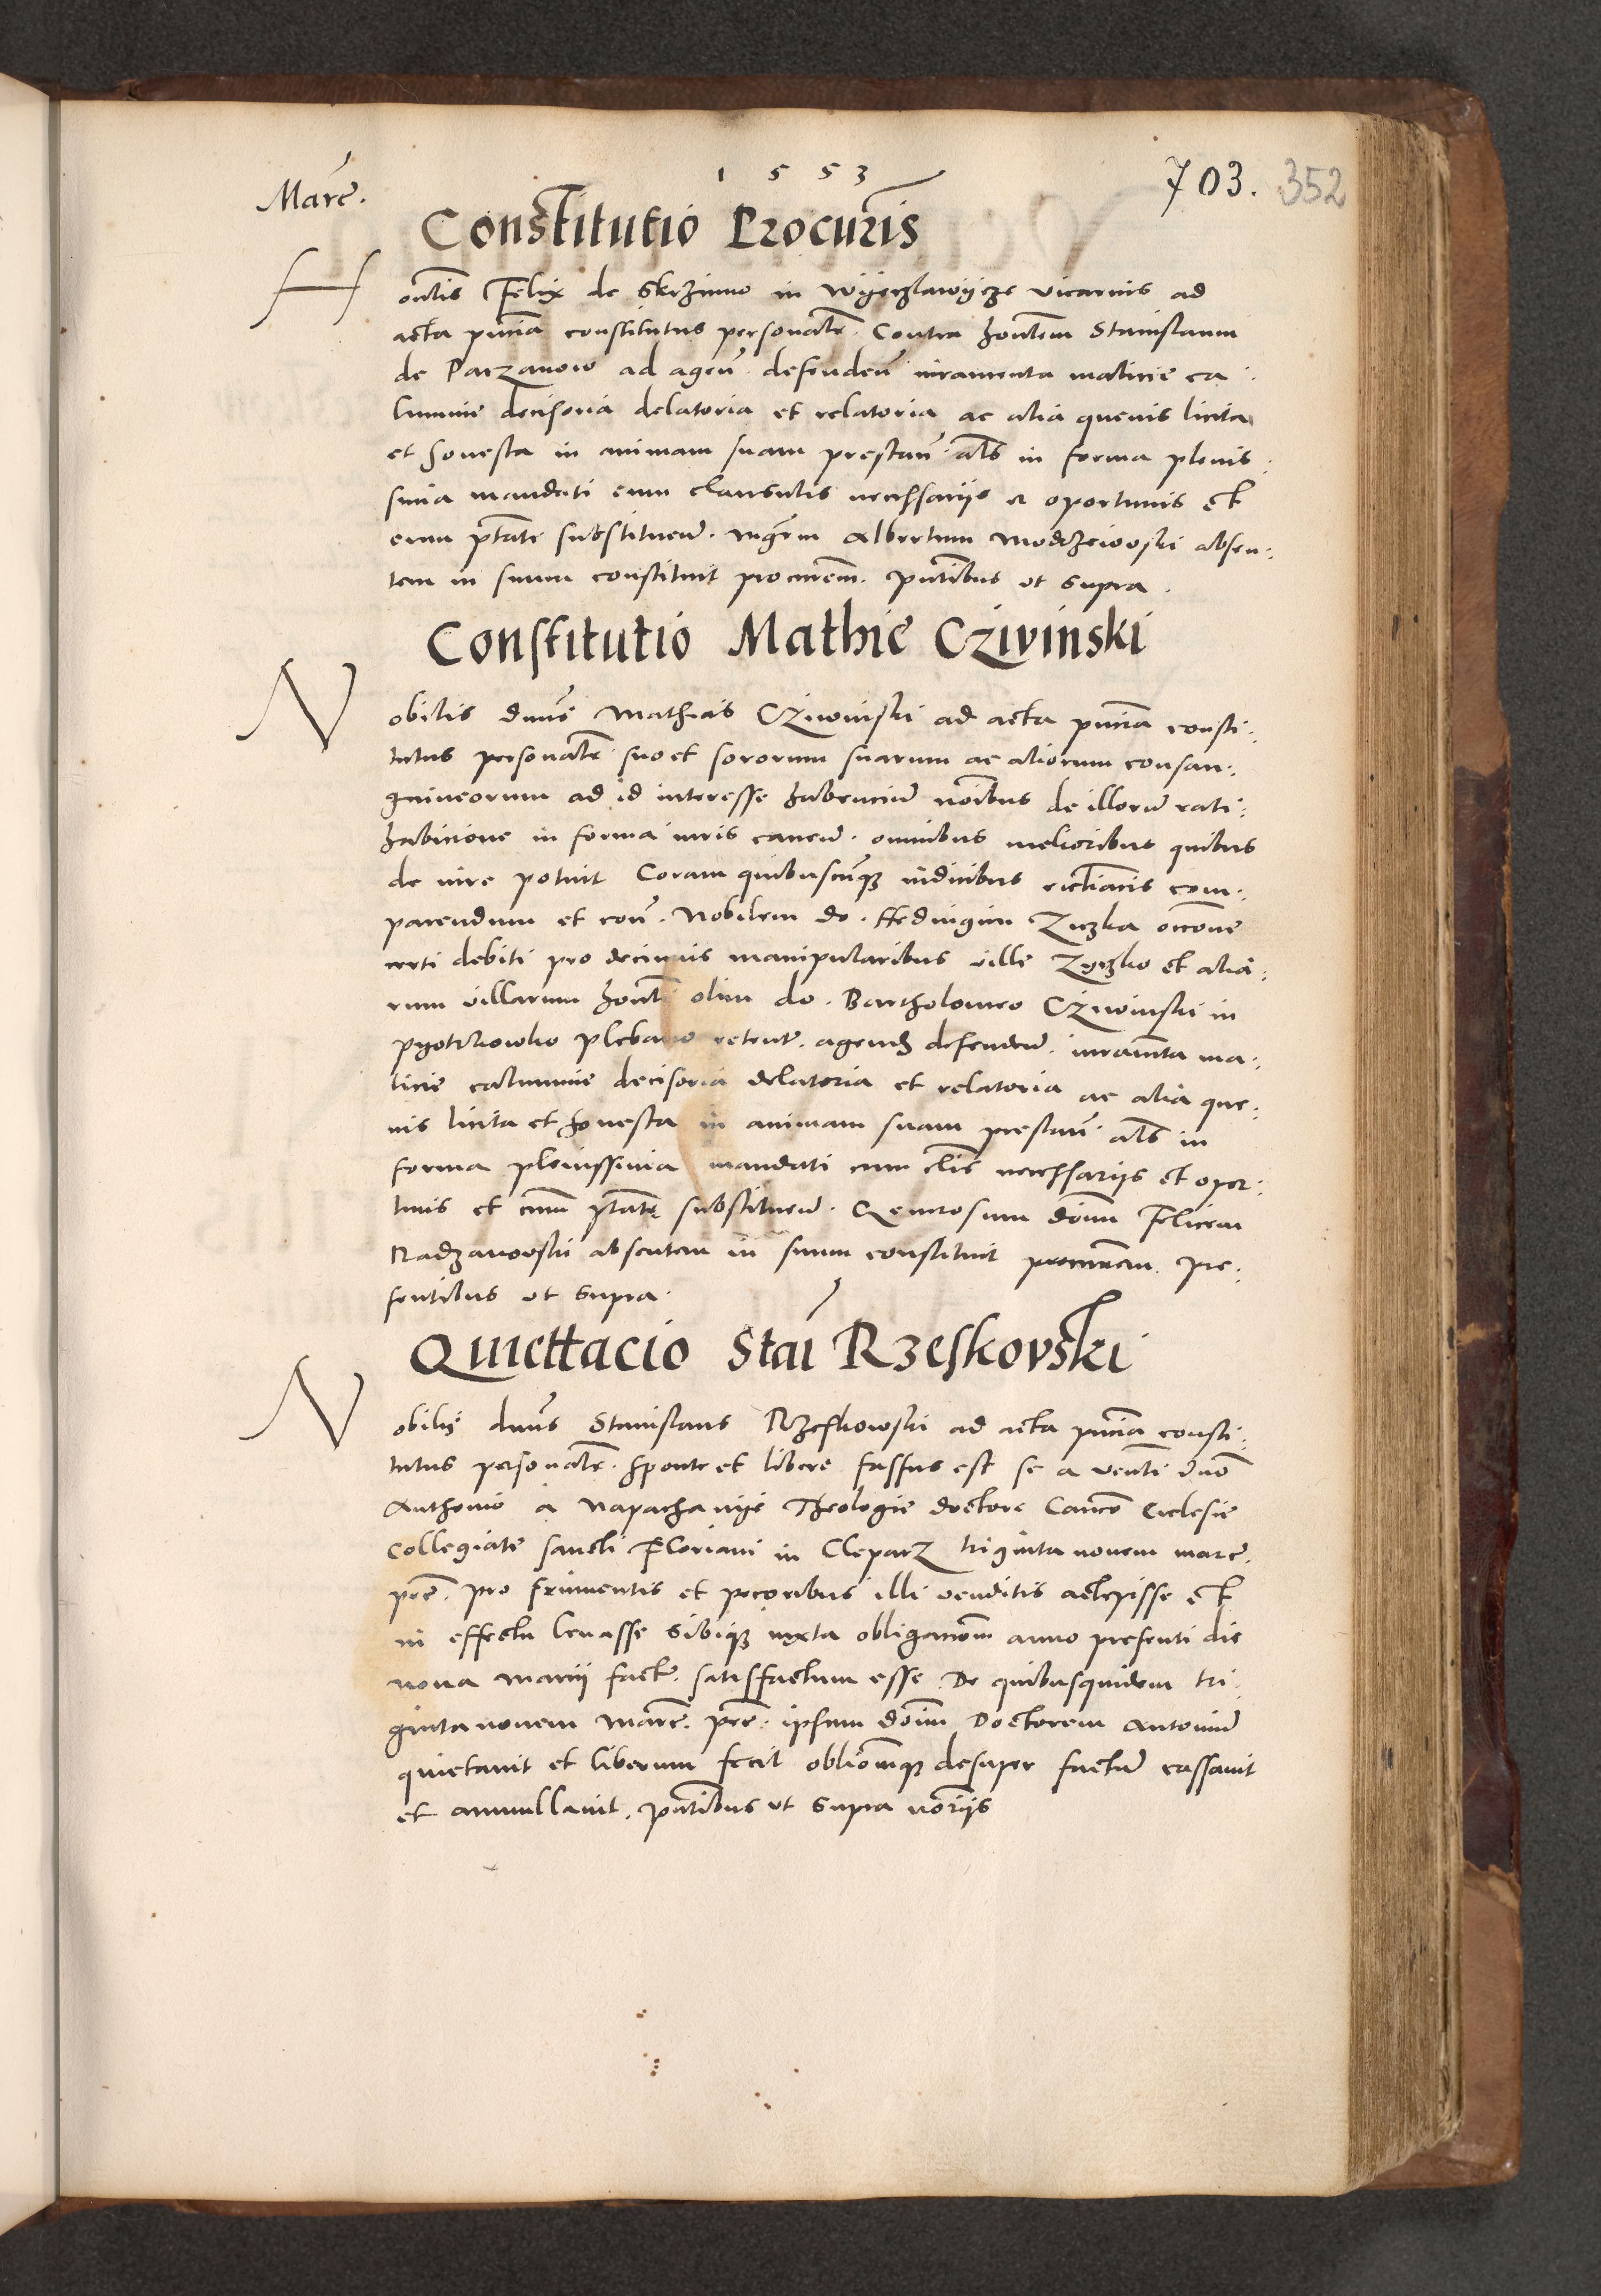 1 5 5 3
Marc̄e. 703. 352
Constitutio Procur̄is
Hon̄lis Felix de Skrzinno in Wyerzlawycze vicarius ad
acta pn̄cia constitutus personalr̄. Contra hon̄lem Stanislaum
de Parzanow ad agen̄. defenden̄ iuramenta malicie ca:
lumnie decisoria delatoria et relatoria ac alia quevis licita
et honesta in animam suam prestan̄. al̄s in forma plenis:
sima mandati cum clausulis necessariis et oportunis et
cum p̄tate substituen̄. mḡrm Albertum Modrzewski absen:
tem in suum constituit procur̄em. pn̄tibus ut supra.
Constitutio Mathie Czivinski
Nobilis dn̄us Mathias Cziwinski ad acta pn̄cia consti:
tutus personalr̄. suo et sororum suarum ac aliorum consan:
guineorum ad id interesse habenciū no̅ibus de illorū rati:
habicione in forma iuris caven̄. omnibus melioribus quibus
de iure potuit Coram quibuscūqꝫ iudicibus eccl̄iacis com:
parendum et con̄. Nobilem do. Hedvigim Ziczka occ̄one
certi debiti pro decimis manipularibus ville Zyczko et alia:
rum villarum hon̄li olim do. Bartholomeo Cziwinski in
Pyotrkowko plebano retent̄. agend̄ defenden̄. iuram̄ta ma:
licie calumnie decisoria delatoria et relatoria ac alia que:
vis licita et honesta in animam suam prestan̄. al̄s in
forma plenissima mandati cum cl̄is necessariis et opor:
tunis et cum p̄tate substituen̄. Generosum dōm̄ Felicem
Radzanowski absentem in suum constituit procur̄em. pre:
sentibus ut supra.
Quiettacio Stāi Rzeskovski
Nobilis dn̄us Stanislaus Rzeskowski ad acta pn̄cia consti:
tutus personalr̄. sponte et libere fassus est se a ven̄li dn̄o
Anthonio a Napachanye Theologie doctore Can̄co Ecclesie
Collegiate sancti Floriani in Cleparz triginta novem marc̄.
pec̄. pro frumentis et pecoribus illi venditis accepisse et
in effectu levasse sibiqꝫ iuxta obligac̄onem anno presenti die
nona marcii fact̄. satisfactum esse De quibusquidem tri:
ginta novem marc̄. pec̄. ipsum dōm̄ Doctorem Antoniū
quietavit et liberum fecit obl̄iōnemqꝫ desuper factā cassavit
et annullavit. pn̄tibus ut supra no̅riis